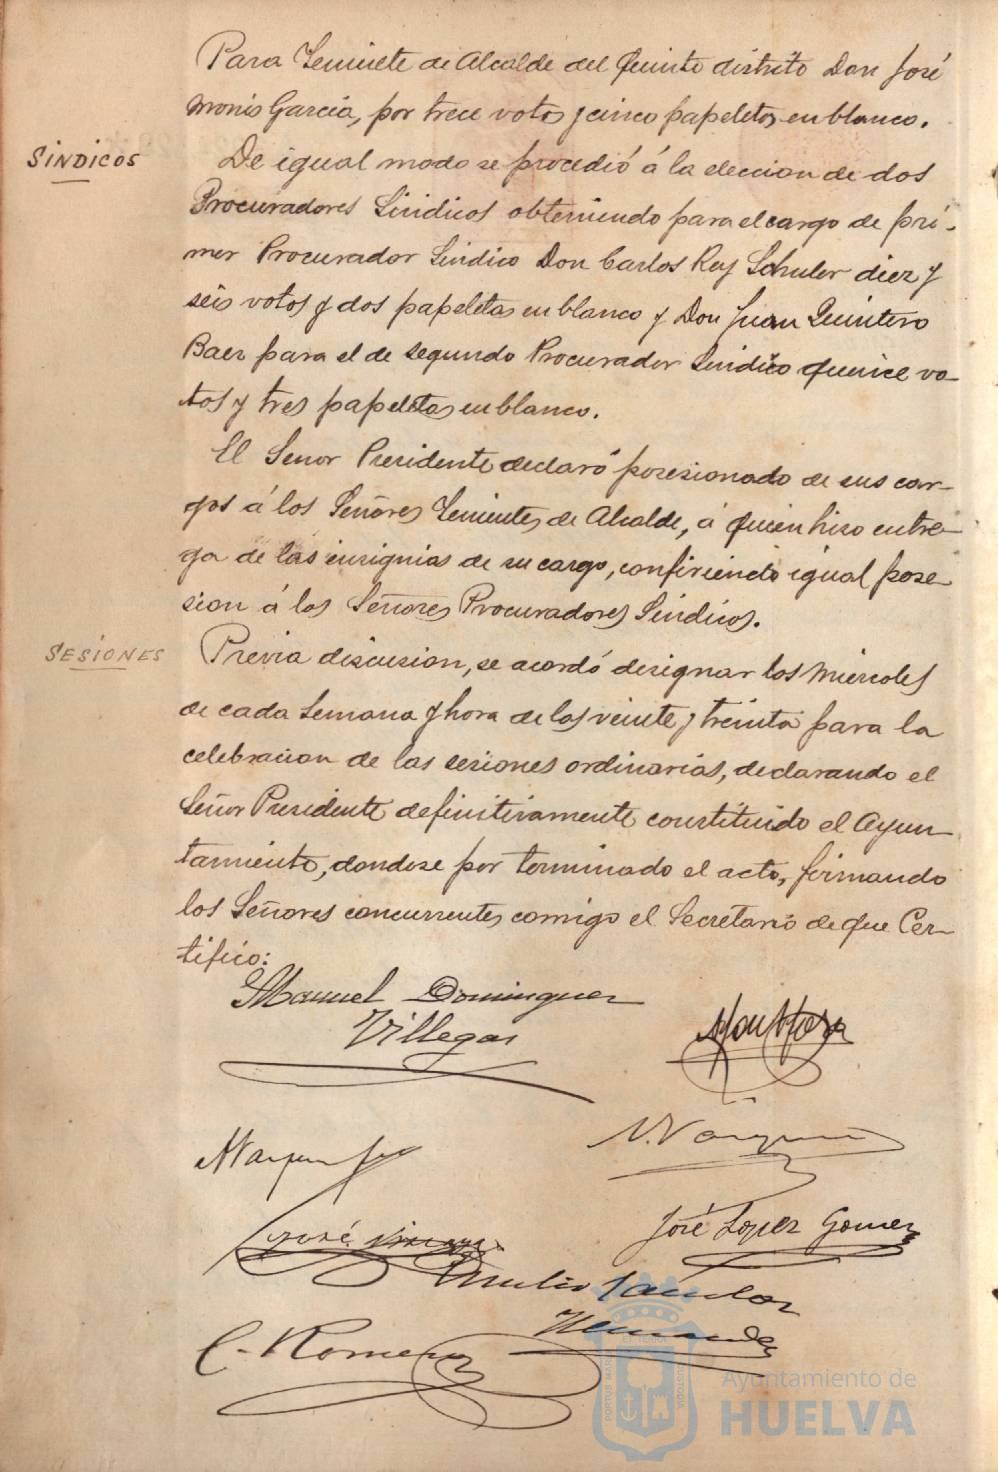 Para Teniente de Alcalde del Quinto distrito Don José
Monis García, por trece votos y cinco papeletas en blanco.
SINDICOS
De igual modo se procedió á la eleccion de dos
Procuradores Sindicos obteniendo para el cargo de pri-
mer Procurador Sindico Don Carlos Rey Schuler diez y
seis votos y dos papeletas en blanco y Don Juan Quintero
Baez para el de segundo Procurador Sindico quince vo-
tos y tres papeletas en blanco.
El Señor Presidente declaró posesionado de sus car-
gos á los Señores Tenientes de Alcalde, á quien hizo entre-
ga de las insignias de su cargo, confiriendo igual pose-
sion á los Señores Procuradores Sindicos.
SESIONES
Previa discusion, se acordó designar los Miercoles
de cada Semana y hora de las veinte y treinta para la
celebracion de las sesiones ordinarias, declarando el
Señor Presidente definitivamente constituido el Ayun-
tamiento, dandose por terminado el acto, firmando
los Señores concurrentes comigo el Secretario de que Cer-
tifico:
Manuel Dominguez
Villegas
José Lopez Gomez
Emilio
Hernandez
C. Romero
PORTUS MARIS
CUSTODIA
Ayuntamiento de
HUELVA